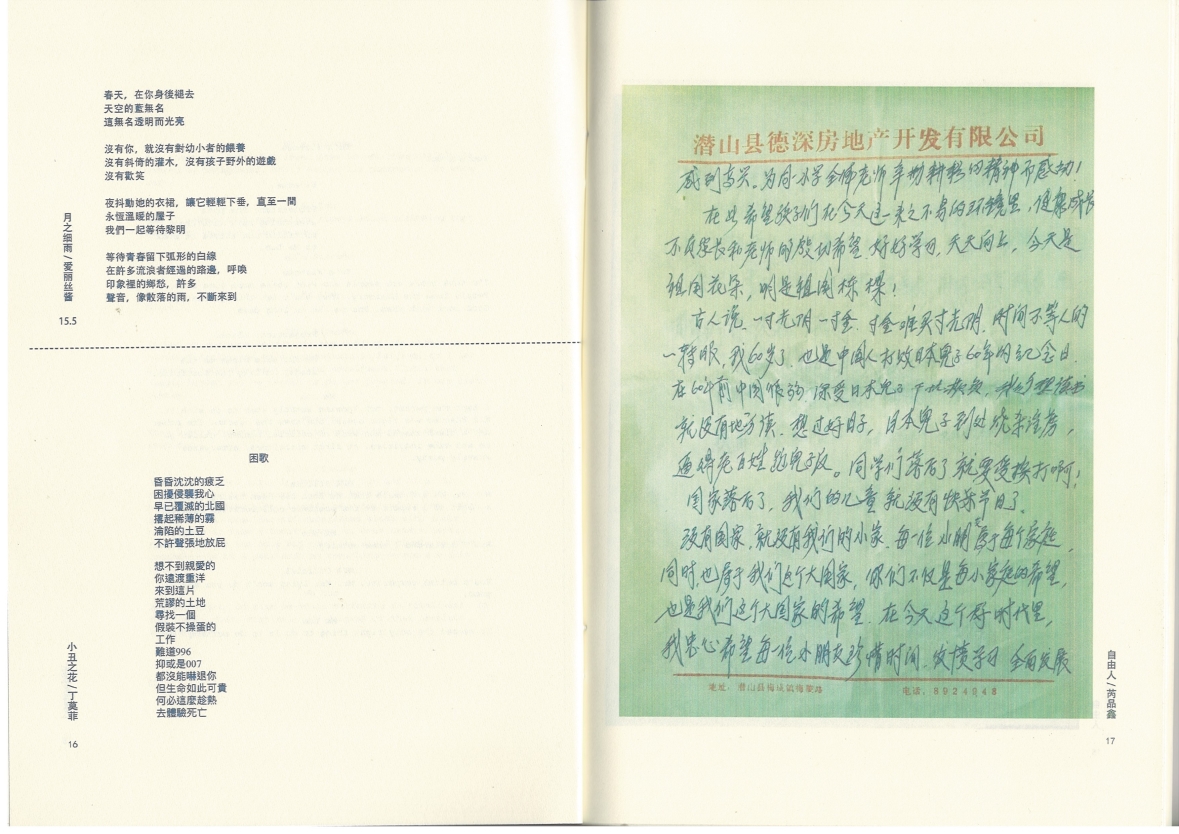 春天，在你身後褪去
天空的藍無名
這無名透明而光亮
沒有你，就沒有對幼小者的餵養
沒有斜倚的灌木，沒有孩子野外的遊戲
沒有歡笑
夜抖動她的衣裙，讓它輕輕下垂，直至一間
永恆溫暖的屋子
我們一起等待黎明
等待青春留下弧形的白線
在許多流浪者經過的路邊，呼喚
印象裡的鄉愁，許多
聲音，像散落的雨，不斷來到
月之细雨/爱丽丝酱
15.5
困歌
昏昏沈沈的疲乏
困擾侵襲我心
早已覆滅的北國
撂起稀薄的霧
淪陷的土豆
不許聲張地放屁
想不到親愛的
你遠渡重洋
來到這片
荒謬的土地
尋找一個
假裝不操蛋的
工作
難道996
抑或是007
都沒能嚇退你
但生命如此可貴
何必這麼趁熱
去體驗死亡
小丑之花/丁莫菲
16
潜山县德深房地产开发有限公司
感到高兴。为同心学全体老师辛勤耕耘的精神而感动！
在此希望孩子们在今天这一来之不易的环境里，健康成长
不负家长和老师的殷切希望 好好学习，天天向上，今天是
祖国花朵，明是祖国栋梁！
古人说，一寸光阴一寸金，寸金难买寸光阴，时间不等人的
一转眼，我60岁了，也是中国人打败日本鬼子60年的纪念日。
在60年前中国很弱，深受日本鬼子
就没有地方读，想过好日子，日本鬼子到处烧杀淫虏，
逼得老百姓 。同学们落后了就要受挨打啊！
国家落后了，我们的儿童就没有快乐节日了。
没有国家，就没有我们的小家，每一位小朋友属于每个家庭，
同时，也属于我们这个大国家，你们不仅是每小家庭的希望，
也是我们这个大国家的希望，在今天这个好时代里，
我衷心希望每一位小朋友珍惜时间，发愤学习，全面发展
地址：潜山县梅城镇
电话：8924948
自由人/芮品鑫
17